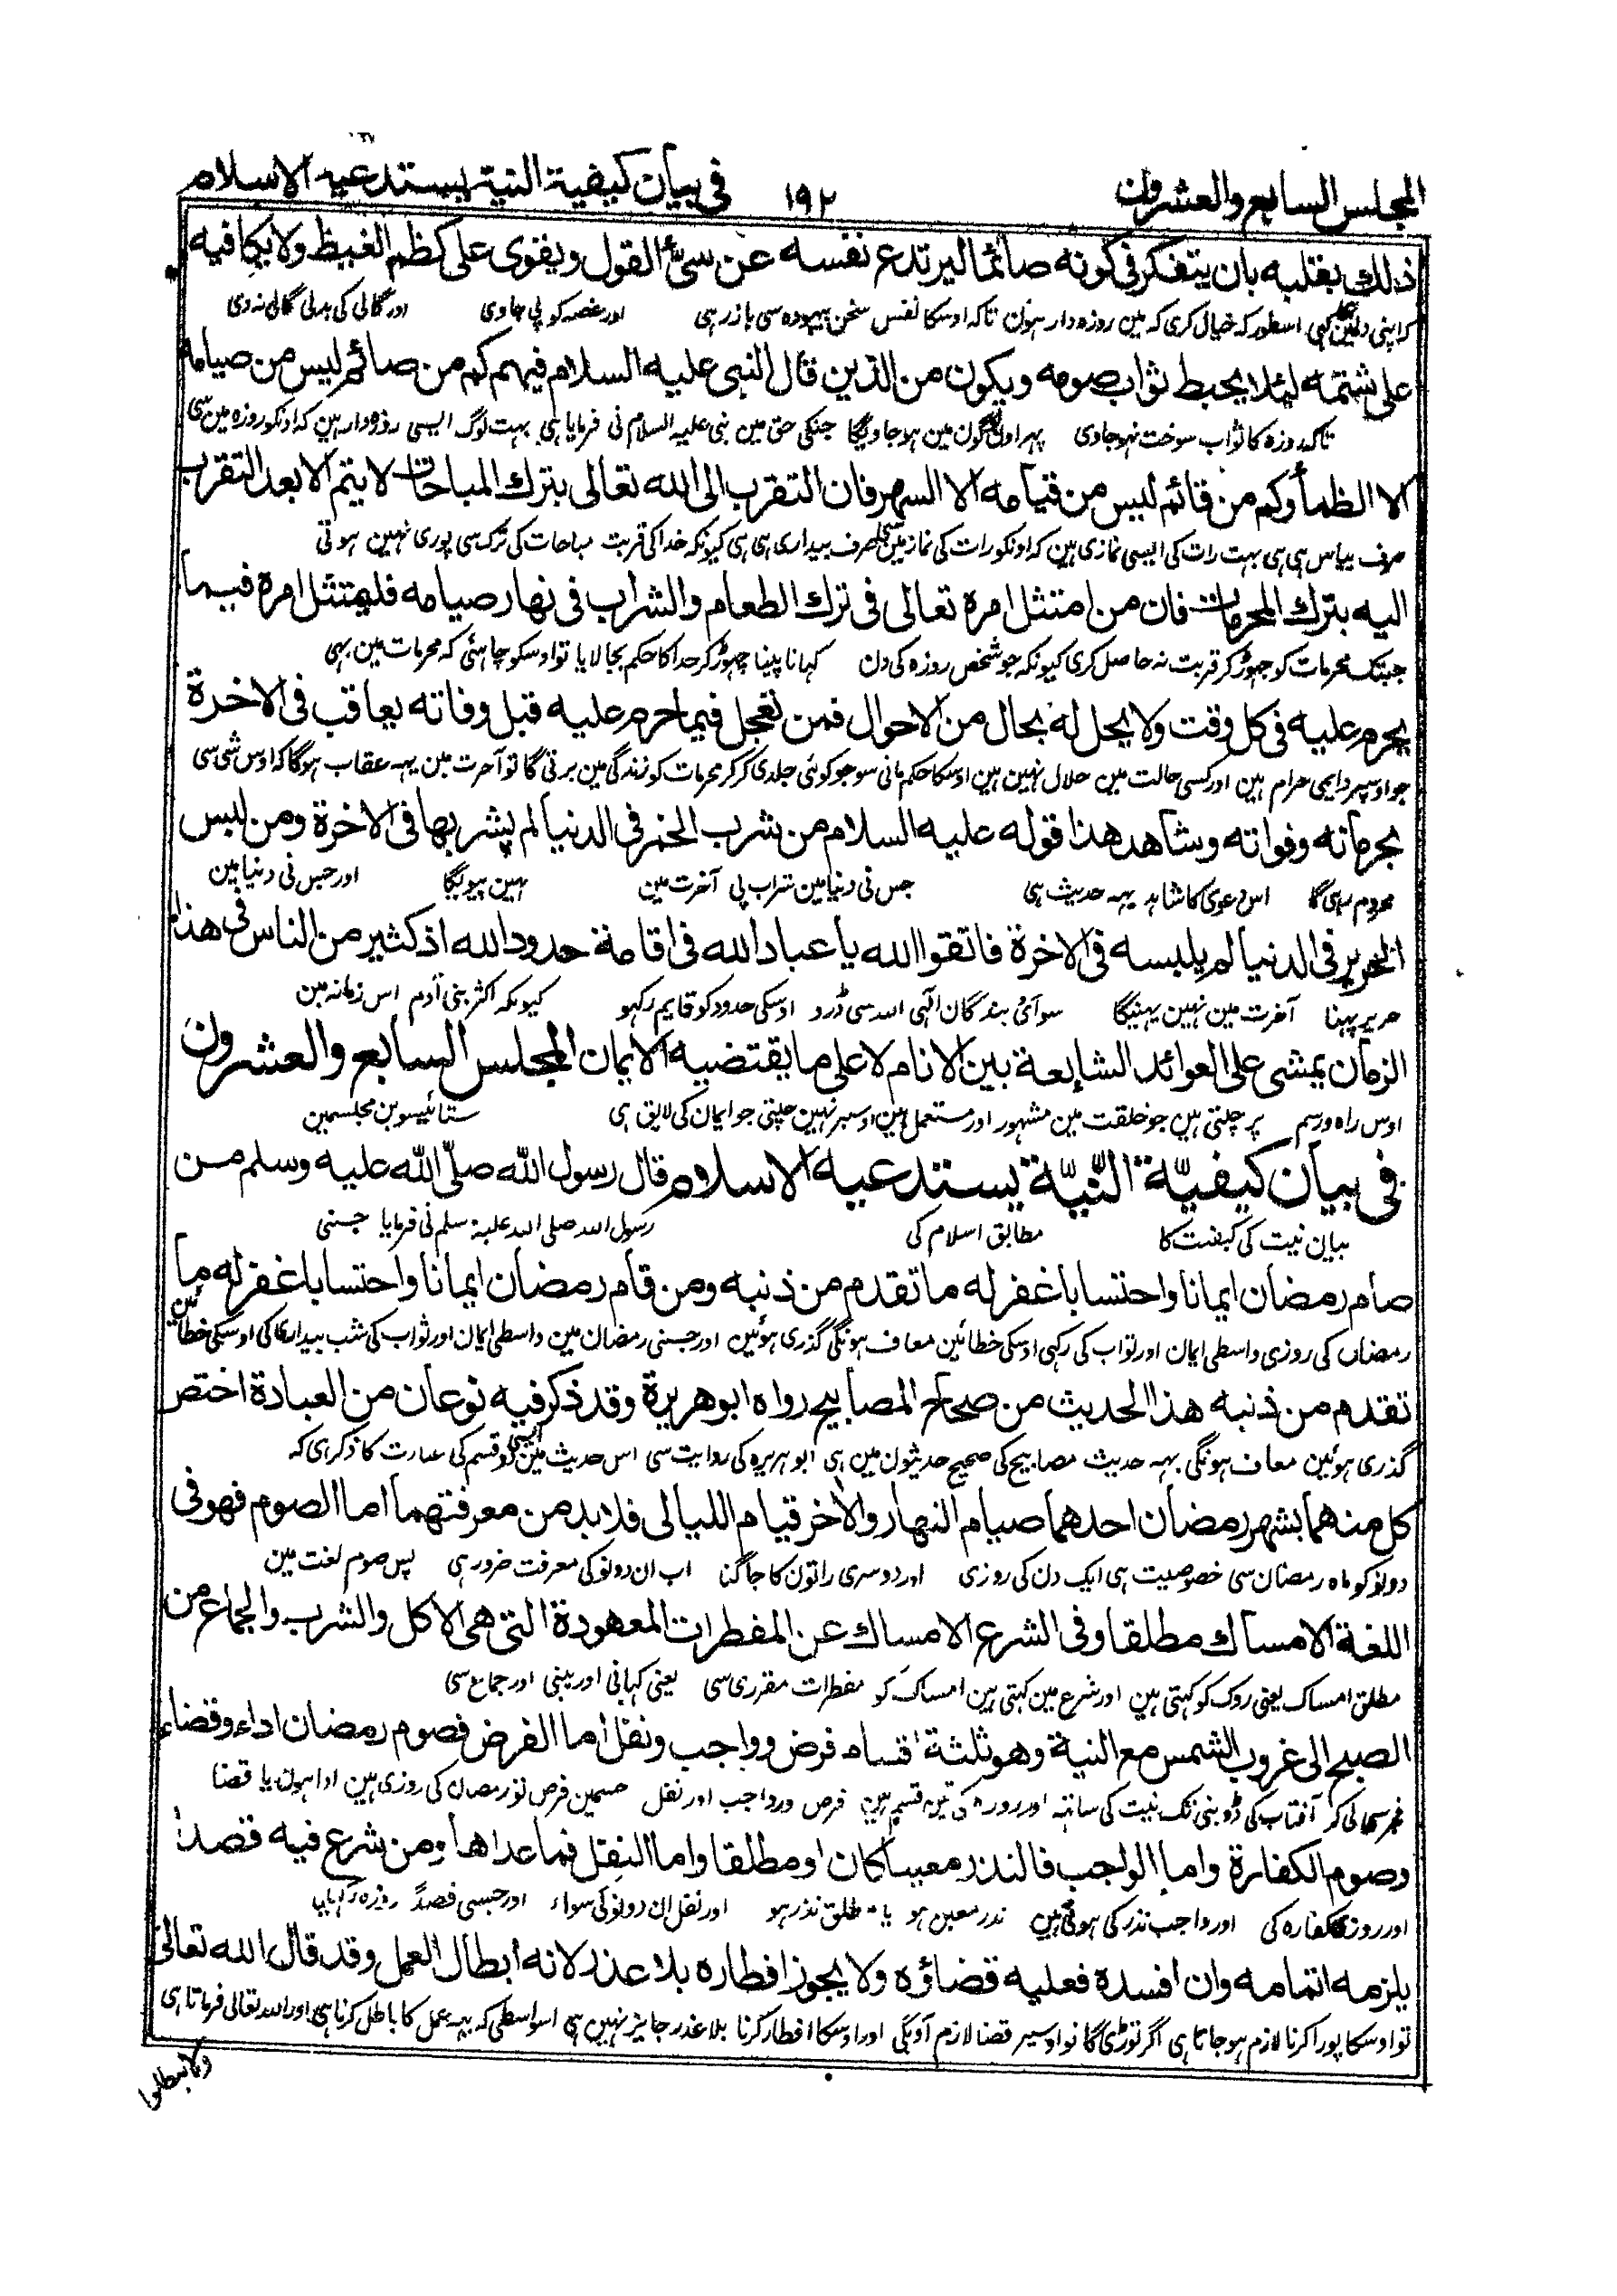 المجلس السابع والعشرون ١٩٢ في بيان كيفية النية يستدعيه الاسلام
ذلك بقلبه بان يتفكر في كونه صائما ليرتدع نفسه عن سيئ القول ويقوى على كظم الغيظ ولا يكافيه
کہ اپنی دلمین کہی اسطور کہ خیال کری کہ مین روزہ دار ہون تاکہ اوسکا نفس سخن بیہودہ سی باز رہی اور غصہ کو پی جاوی اور گالی کی بدلی گالی ندی
على شتمه لئلا يحبط ثواب صومه ويكون من الذين قال النبى عليه السلام فيهم كم من صائم ليس من صيامه
تاکہ روزہ کا ثواب سوخت نہوجاوی پہر اون لوگون مین ہوجاویگا جنکی حق مین نبی علیہ السلام نی فرمایا ہی بہت لوگ ایسی روزہ دار ہین کہ اونکو روزہ مین سی
الا الظمأ وكم من قائم ليس من قيامه الا السهر فان التقرب الى الله تعالى بترك المباحات لا يتم الا بعد التقرب
صرف پیاس ہی ہی بہت رات کی ایسی نمازی ہین کہ اونکو رات کی نماز مین سی صرف بیداری ہی ہی کیونکہ خدا کی قربت مباحات کی ترک سی پوری نہین ہوتی
اليه بترك المحرمات فان من امتثل امره تعالى فى ترك الطعام والشراب فى نهار صيامه فليمتثل امره فيما
جبتک محرمات کو چہوڑ کر قربت نہ حاصل کری کیونکہ جو شخص روزہ کی دن کہانا پینا چہوڑ کر خدا کا حکم بجا لایا تو اوسکو چاہئی کہ محرمات مین بہی
يحرم عليه فى كل وقت ولا يحل له بحال من الاحوال فمن تعجل فيما حرم عليه قبل وفاته يعاقب فى الاخرة
جو اوسپر دایمی حرام ہین اور کسی حالت مین حلال نہین ہین اوسکا حکم مانی سو جو کوئی جلدی کر کر محرمات کو زندگی مین برتی گا تو آخرت مین یہہ عقاب ہوگا کہ اوس شی سی
بحرمانه وفواته وشاهد هذا قوله عليه السلام من شرب الخمر فى الدنيا لم يشربها فى الاخرة ومن لبس
محروم رہی گا اس دعوی کا شاہد یہہ حدیث ہی جس نی دنیا مین شراب پی آخرت مین نہین پیویگا اور جس نی دنیا مین
الحرير فى الدنيا لم يلبسه فى الاخرة فاتقوا الله يا عباد الله فى اقامة حدود الله اذ كثير من الناس فى هذا
حریر پہنا آخرت مین نہین پہنیگا سو آئی بندگان الہی اللہ سی ڈرو اوسکی حدود کو قایم رکہو کیونکہ اکثر بنی آدم اس زمانہ مین
الزمان يمشى على العوائد الشايعة بين الانام لا على ما يقتضيه الايمان المجلس السابع والعشرون
اوس راہ ورسم پر چلتی ہین جو خلقت مین مشہور اور مستعمل ہین اوسپر نہین چلتی جو ایمان کی لایق ہی ستائیسوین مجلسمین
فى بيان كيفيّة النّيّة يستدعيه الاسلام قال رسول الله صلّى الله عليه وسلم من
بیان نیت کی کیفیت کا مطابق اسلام کی رسول اللہ صلی اللہ علیہ وسلم نی فرمایا جسنی
صام رمضان ايمانا واحتسابا غفر له ما تقدم من ذنبه ومن قام رمضان ايمانا واحتسابا غفر له ما
رمضان کی روزی واسطی ایمان اور ثواب کی رکہی اوسکی خطائین معاف ہونگی گذری ہوئین اور جسنی رمضان مین واسطی ایمان اور ثواب کی شب بیداری کی اوسکی خطائین
تقدم من ذنبه هذا الحديث من صحاح المصابيح رواه ابو هريرة وقد ذكر فيه نوعان من العبادة اختص
گذری ہوئین معاف ہونگی یہہ حدیث مصابیح کی صحیح حدیثون مین ہی ابو ہریرہ کی روایت سی اس حدیث مین ایسی دو قسم کی عبادت کا ذکر ہی کہ
كل منهما بشهر رمضان احدهما صيام النهار والاخر قيام الليالى فلا بد من معرفتهما اما الصوم فهو فى
دونو کو ماہ رمضان سی خصوصیت ہی ایک دن کی روزی اور دوسری راتون کا جاگنا اب ان دونو کی معرفت ضرور ہی پس صوم لغت مین
اللغة الامساك مطلقا وفى الشرع الامساك عن المفطرات المعهودة التى هى الاكل والشرب والجماع من
مطلق امساک یعنی روک کو کہتی ہین اور شرع مین کہتی ہین امساک کو مفطرات مقرری سی یعنی کہانی اور پینی اور جماع سی
الصبح الى غروب الشمس مع النية وهو ثلثة اقسام فرض وواجب ونفل اما الفرض فصوم رمضان اداء وقضاء
فجر سی لی کر آفتاب کی ڈوبنی تک نیت کی ساتہ اور روزہ کی تین قسم ہین فرض اور واجب اور نفل جسمین فرض تو رمضان کی روزی ہین ادا ہون یا قضا
وصوم الكفارة واما الواجب فالنذر معينا كان او مطلقا واما النفل فما عداها ومن شرع فيه قصدا
اور روزی کفارہ کی اور واجب نذر کی ہوتی ہین نذر معین ہو یا مطلق نذر ہو اور نفل ان دونو کی سواء اور جسنی قصدً روزہ رکہہ لیا
يلزمه اتمامه وان افسده فعليه قضاؤه ولا يجوز افطاره بلا عذر لانه ابطال العمل وقد قال الله تعالى
تو اوسکا پورا کرنا لازم ہوجاتا ہی اگر توڑی گا تو اوسپر قضا لازم آویگی اور اوسکا افطار کرنا بلا عذر جایز نہین ہی اسواسطی کہ یہہ عمل کا باطل کرنا ہی اور اللہ تعالی فرماتا ہی
ولا تبطلوا